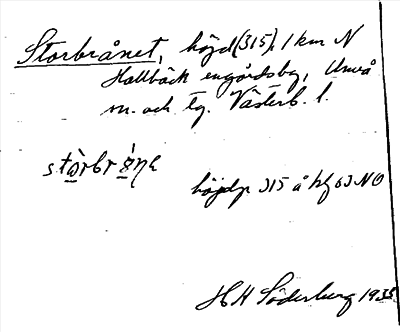 Storbrånet, höjd (315), 1 km N
Hallbäck engårdsby, Umeå
m. och tg. Västerb. l.
höjdp 315 å kbf 63 NO
H H Söderberg 1935